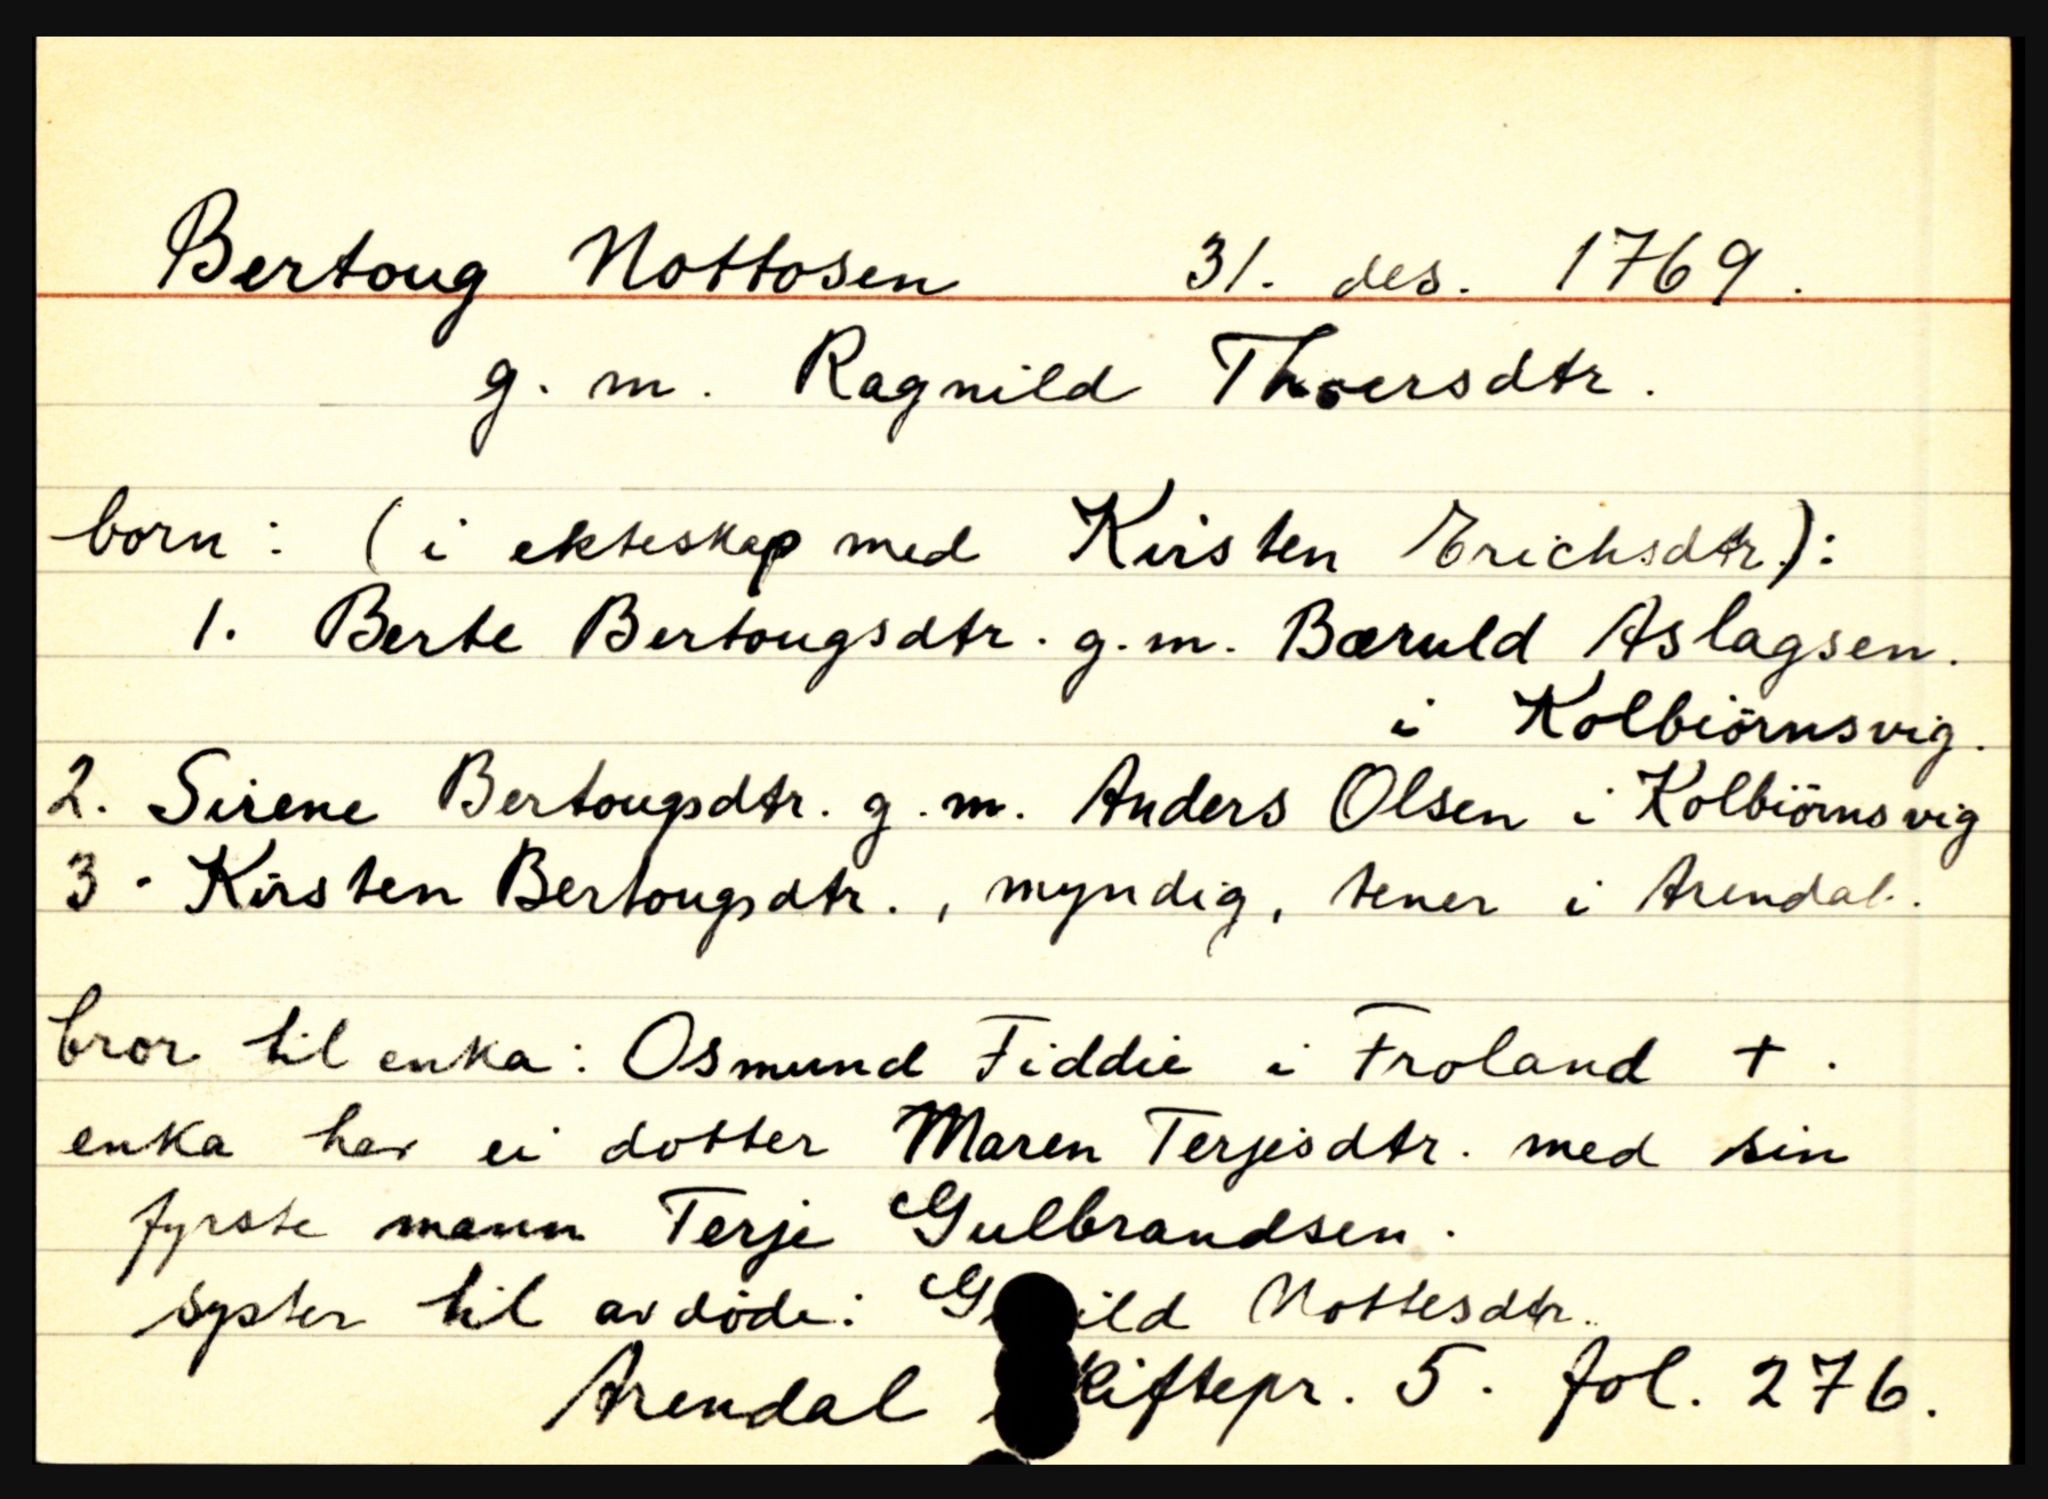 Bertoug Nottosen 31. des. 1769.
g. m. Ragnild Thoersdtr.
born: (i ekteskap med Kirsten Erichsdtr.):
1. Berte Bertougsdtr. g.m. Bæruld Aslagsen.
i Kolbiörnsvig.
2. Sirene Bertougsdtr. g.m. Anders Olsen i Kolbiörnsvig
3. Kirsten Bertougsdtr., myndig, tener i Arendal.
bror til enka: Osmund Fiddie i Froland +.
enka har ei dotter Maren Terjesdtr. med sin
fyrste mann Terje Gulbrandsen.
syster til avdöde: Nottesdtr.
Arendal 5. fol. 276.